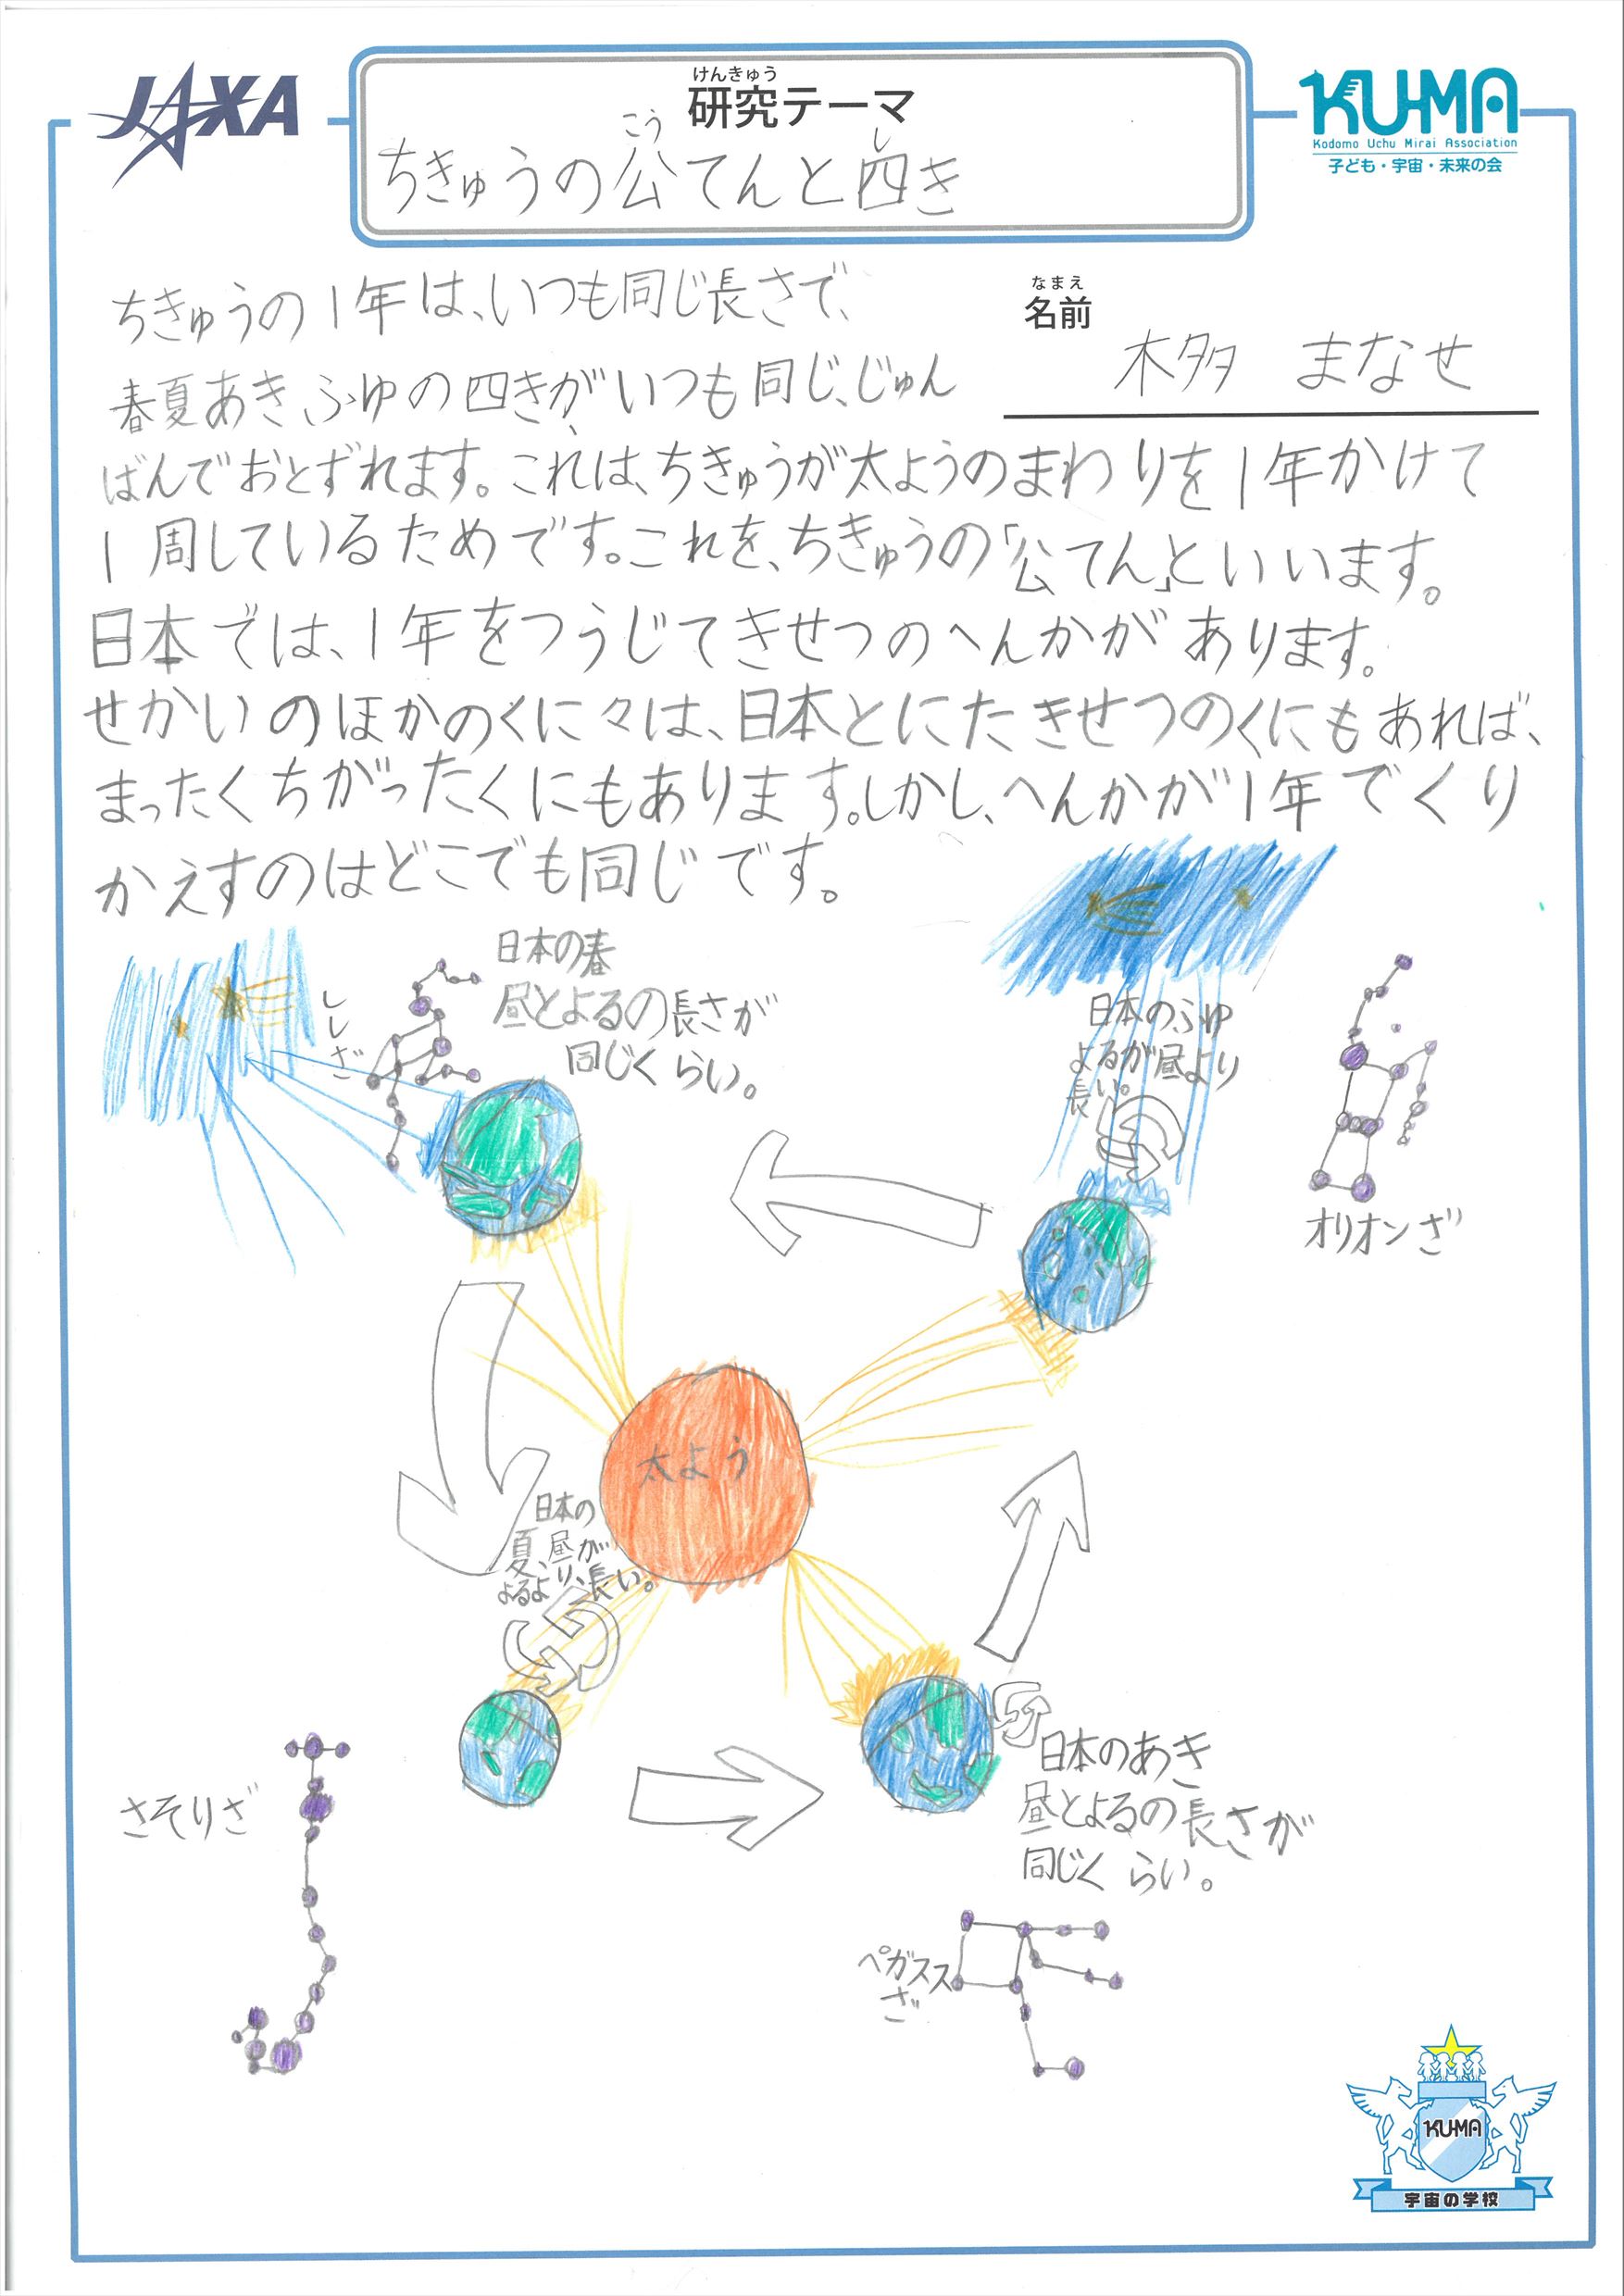 JAXA
けんきゅう
研究テーマ
こう
し
ちきゅうの公てんと四き
KU-MA
Kodomo Uchu Mirai Association
子ども・宇宙・未来の会
なまえ
名前
木多 まなせ
ちきゅうの1年は、いつも同じ長さで、
春夏あきふゆの四きが、いつも同じ、じゅん
ばんでおとずれます。これは、ちきゅうが太ようのまわりを1年かけて
1周しているためです。これを、ちきゅうの「公てん」といいます。
日本では、1年をつうじてきせつのへんかがあります。
せかいのほかのくに々は、日本とにたきせつのくにもあれば、
まったくちがったくにもあります。しかし、へんかが1年でくり
かえすのはどこでも同じです。
ししざ
日本の春
昼とよるの長さが
同じくらい。
日本のふゆ
よるが昼より
長い。
オリオンざ
太よう
日本の
夏、昼が
よるより、長い。
さそりざ
日本のあき
昼とよるの長さが
同じくらい。
ペガスス
ざ
KU-MA
宇宙の学校